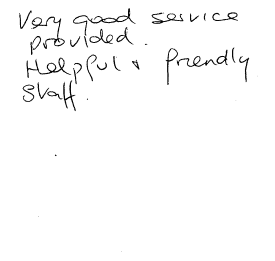 Very good service
provided.
Helpful & friendly
Staff.